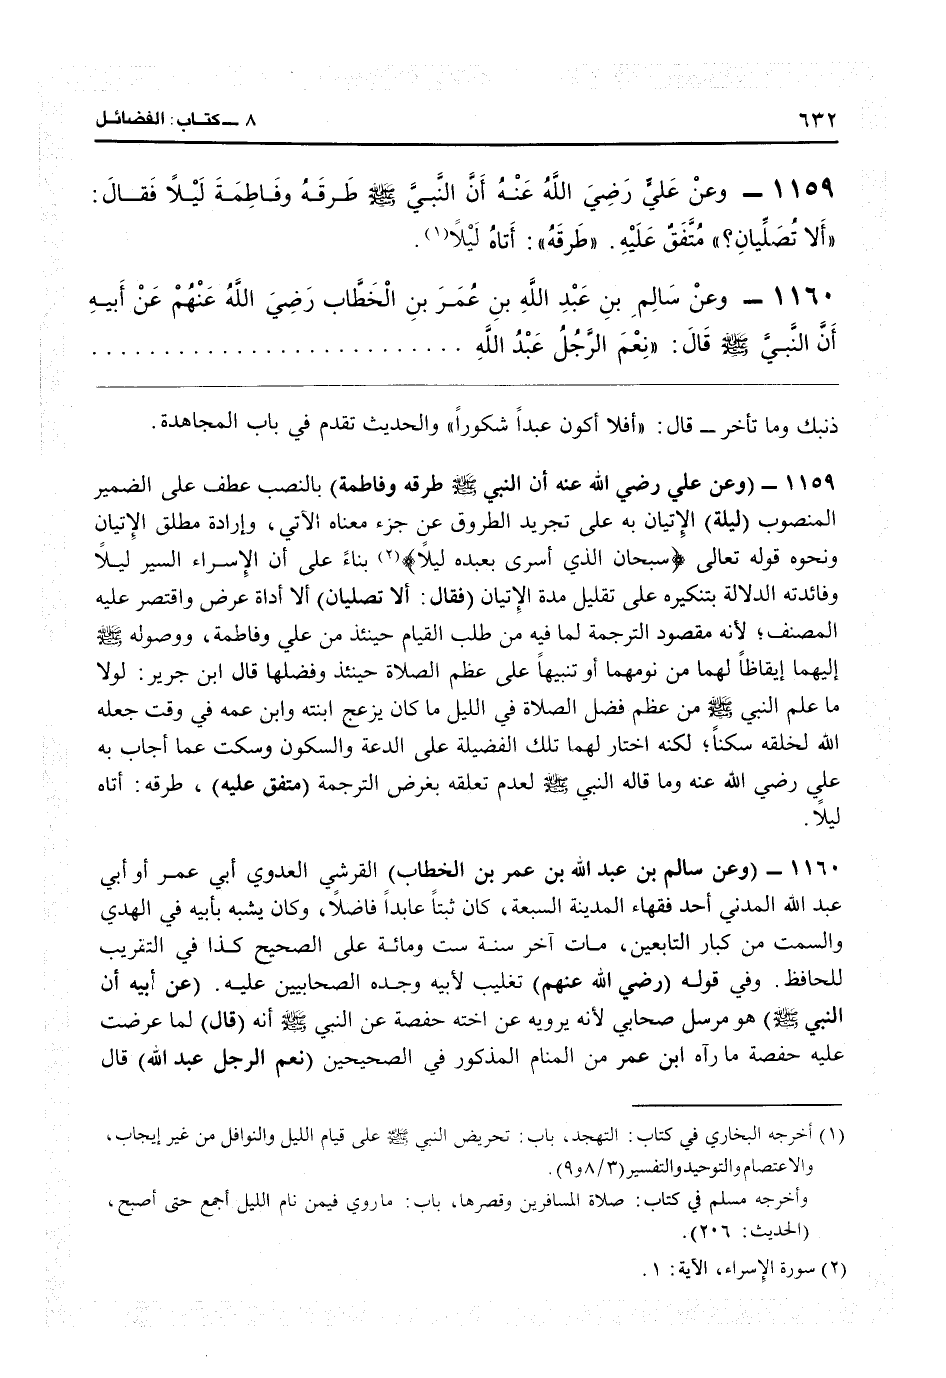 ٦٣٢
٨ ــ كتـاب: الفضائـل
١١٥٩ ــ وعنْ عَليٍّ رَضِيَ اللَّهُ عَنْـهُ أَنَّ النَّبيَّ ﷺ طَـرقَـهُ وفَـاطِمَـةَ لَيْـلًا فَقـالَ:
«أَلا تُصَلِّيانِ؟» مُتَّفَقٌ عَلَيْهِ. «طَرقَهُ»: أَتاهُ لَيْلًا(١).
١١٦٠ ــ وعنْ سَالِمِ بنِ عَبْدِ اللَّهِ بنِ عُمَرَ بنِ الْخَطَّاب رَضِيَ اللَّهُ عَنْهُمْ عَنْ أَبيـهِ
أَنَّ النَّبـيَّ ﷺ قَالَ: «نِعْمَ الرَّجُلُ عَبْدُ اللَّهِ . . . . . . . . . . . . . . . . . . . . . . . . . .
ذنبك وما تأخر ــ قال: «أفلا أكون عبداً شكوراً» والحديث تقدم في باب المجاهدة.
١١٥٩ ــ (وعن علي رضي الله عنه أن النبي ﷺ طرقه وفاطمة) بالنصب عطف على الضمير
المنصوب (ليلة) الإتيان به على تجريد الطروق عن جزء معناه الآتي، وإرادة مطلق الإتيان
ونحوه قوله تعالى ﴿سبحان الذي أسرى بعبده ليلًا﴾(٢) بناءً على أن الإسـراء السير ليـلًا
وفائدته الدلالة بتنكيره على تقليل مدة الإتيان (فقال: ألا تصليان) ألا أداة عرض واقتصر عليه
المصنف؛ لأنه مقصود الترجمة لما فيه من طلب القيام حينئذ من علي وفاطمة، ووصوله ﷺ
إليهما إيقاظاً لهما من نومهما أو تنبيهاً على عظم الصلاة حينئذ وفضلها قال ابن جرير: لولا
ما علم النبي ﷺ من عظم فضل الصلاة في الليل ما كان يزعج ابنته وابن عمه في وقت جعله
الله لخلقه سكناً؛ لكنه اختار لهما تلك الفضيلة على الدعة والسكون وسكت عما أجاب به
علي رضي الله عنه وما قاله النبي ﷺ لعدم تعلقه بغرض الترجمة (متفق عليه) ، طرقه: أتاه
ليلًا.
١١٦٠ ــ (وعن سالم بن عبد الله بن عمر بن الخطاب) القرشي العدوي أبي عمـر أو أبي
عبد الله المدني أحد فقهاء المدينة السبعة، كان ثبتاً عابداً فاضلًا، وكان يشبه بأبيه في الهدي
والسمت من كبار التابعين، مـات آخر سنـة ست ومائـة على الصحيح كـذا في التقريب
للحافظ. وفي قولـه (رضي الله عنهم) تغليب لأبيه وجـده الصحابيين عليـه. (عن أبيه أن
النبي ﷺ) هو مرسل صحابي لأنه يرويه عن اخته حفصة عن النبي ﷺ أنه (قال) لما عرضت
عليه حفصة ما رآه ابن عمر من المنام المذكور في الصحيحين (نعم الرجل عبد الله) قال
(١) أخرجه البخاري في كتاب: التهجد، باب: تحريض النبي ﷺ على قيام الليل والنوافل من غير إيجاب،
والاعتصام والتوحيد والتفسير (٨/٣ و٩).
وأخرجه مسلم في كتاب: صلاة المسافرين وقصرها، باب: ما روي فيمن نام الليل أجمع حتى أصبح،
(الحديث: ٢٠٦).
(٢) سورة الإسراء، الآية: ١.